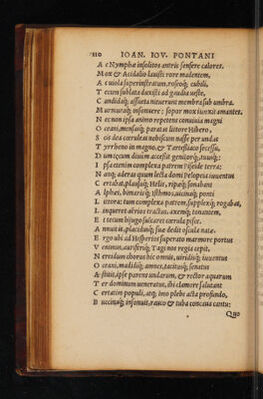 110 IOAN. IOV. PONTANI
A c Nymphæ insolitos antris sensere calores.
M ox & Acidalio lauisti rore madentem,
A c uiola superinstratum, rosisq; cubili,
T ecum sublata duxisti ad gaudia ueste,
C andidaq; assueta niuerunt membra sub umbra.
M urmuraq; insonuere; sopor mox iunxit amantes.
N ec non ipsa animo repetens conuiuia magni
O ceani, mensasq; paratas littore Hibero,
, os dea cœruleas nebissem nasse per undas
T yrrheno in magno, & Tartessiaco secessu,
D um tecum diuûm accessit genitorq;
I psa etenim complexa patrem Nereide terra;
N anq; aderas quum lecta domi Pelopeia iuuentus
C ertabat, plausuq; Helis, ripæq; sonabant
A lphæi, bimarisq; isthmos, uicinaq; ponti
L ittora: tum complexa patrem, supplexq; rogabat,
L inqueret aërios tractus, axemq; tonantem,
E t tecum bijugo fulcaret cœrula pisce.
A nnuit is, placiduq; suæ dedit oscula natæ.
E rgo ubi ad Hesperios superato marmore portus
V entum, auriferuq; Tagi non regia cepit,
N ereidum chorus hic omnis, uiridisq; iuuentus
O ceani, madidiq; amnes, tacitusq; senatus
A stitit, ipse parens undarum, & rector aquarum
T er dominum ueneratur, ibi clamore salutant
C ertatim populi, atq; imo plebs acta profundo,
B uccinaq; insonuit, rauco & tuba concaua cantu;
Quo